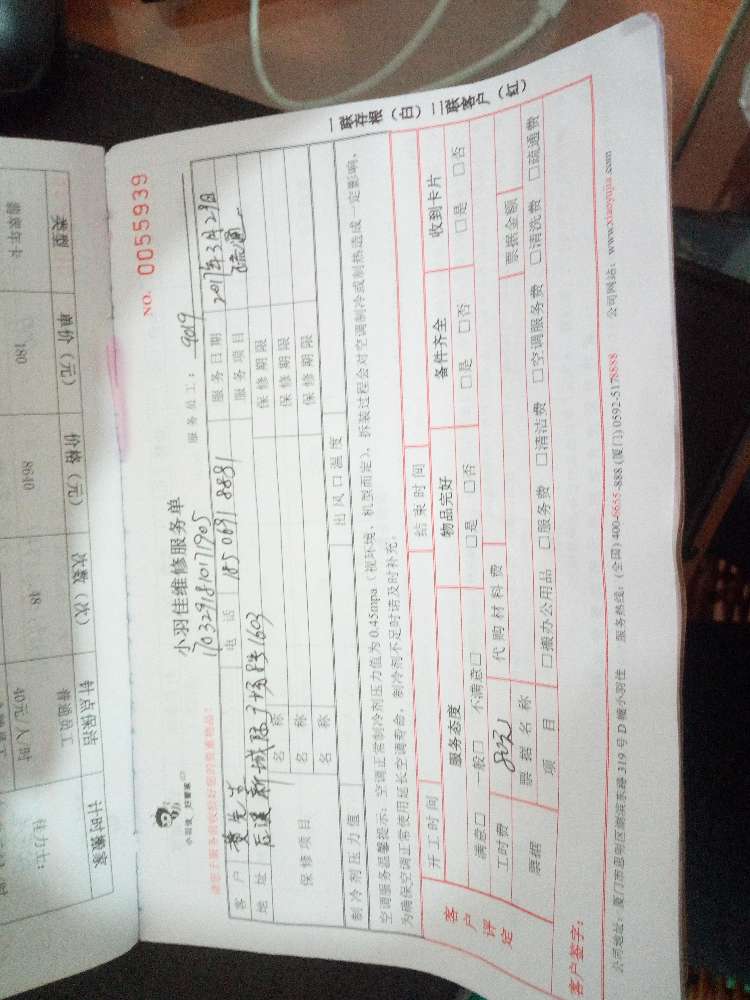 NO. 0055939
小羽佳 好管家
小羽佳维修服务单
1703291810171905
服务员工： 9019
客户
电话 185 0691 8881
服务日期 2017年3月29日
地址
服务项目 疏通
保修项目
名称 保修期限
名称 保修期限
名称 保修期限
制冷剂压力值 出风口温度
空调服务温馨提示：空调正常制冷剂压力值为0.45mpa（视环境、机型而定），拆装过程会对空调制冷或制热造成一定影响，
为确保空调正常使用延长空调寿命，制冷剂不足时请及时补充。
开工时间 结束时间
客户评定
服务态度 物品完好 备件齐全 收到卡片
满意□ 一般□ 不满意□ □是 □否 □是 □否 □是 □否
工时费 代购材料费
票据 票据名称 票据金额
项目 □搬办公用品 □服务费 □清洁费 □空调服务费 □清洗费 □疏通费
客户签字：
服务热线：(全国) 400-6655-888 (厦门) 0592-5178888 公司网站：www.xiaoyujia.com
一联存根（白）二联客户（红）
类型 单价（元） 价格（元） 次数（次）
180 8640 48
普通员工
40元/人时
计时搬家